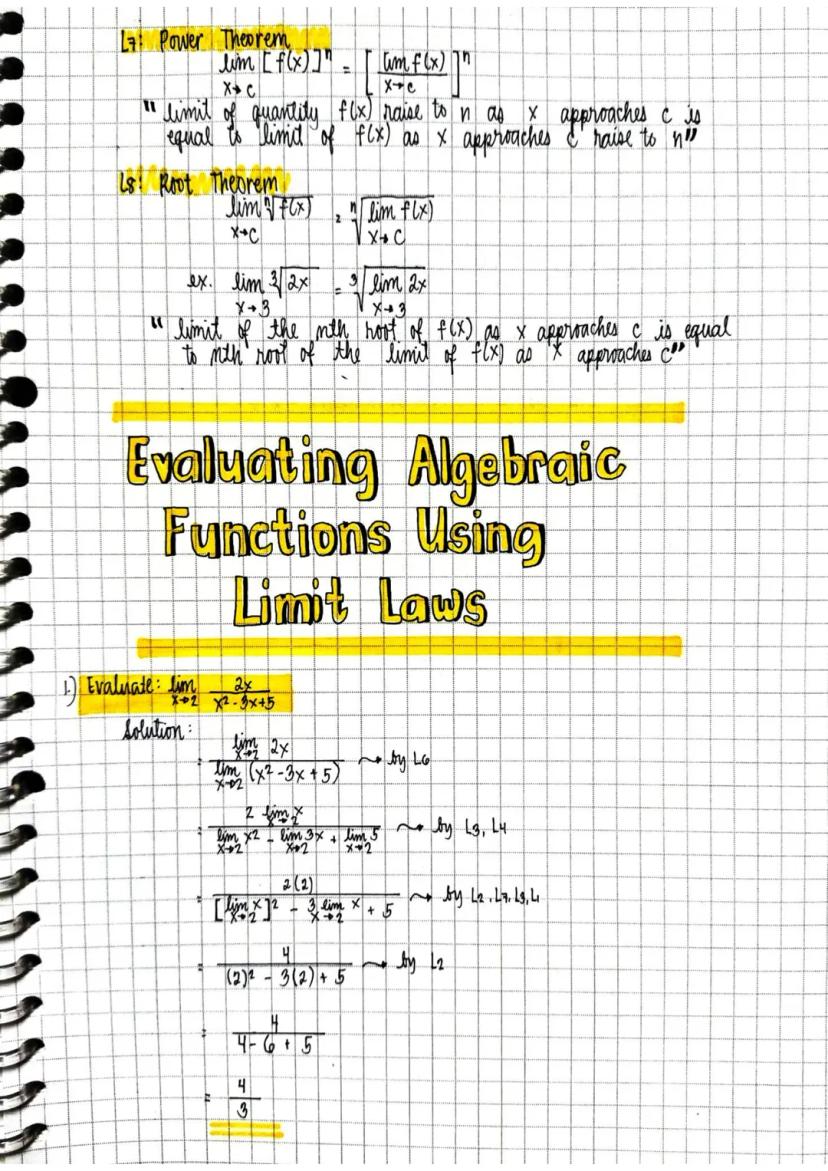 L7: Power Theorem
lim [f(x)]ⁿ = [ lim f(x) ]ⁿ
x→c x→c
" limit of quantity f(x) raise to n as x approaches c is
equal to limit of f(x) as x approaches c raise to n"
L8: Root Theorem
lim ⁿ√f(x) = ⁿ√lim f(x)
x→c x→c
ex. lim ³√2x = ³√lim 2x
x→3 x→3
" limit of the nth root of f(x) as x approaches c is equal
to nth root of the limit of f(x) as x approaches c"
Evaluating Algebraic
Functions Using
Limit Laws
1.) Evaluate: lim 2x
x→2 x²-3x+5
Solution:
lim 2x
x→2
= ~→ by L6
lim (x²-3x+5)
x→2
2 lim x
x→2
= ~→ by L3, L4
lim x2 - lim 3x + lim 5
x→2 x→2 x→2
2(2)
= ~→ by L2, L7, L3, L1
[lim x]² - 3 lim x + 5
x→2 x→2
4
= ~→ by L2
(2)² - 3(2) + 5
4
=
4-6+5
4
=
3